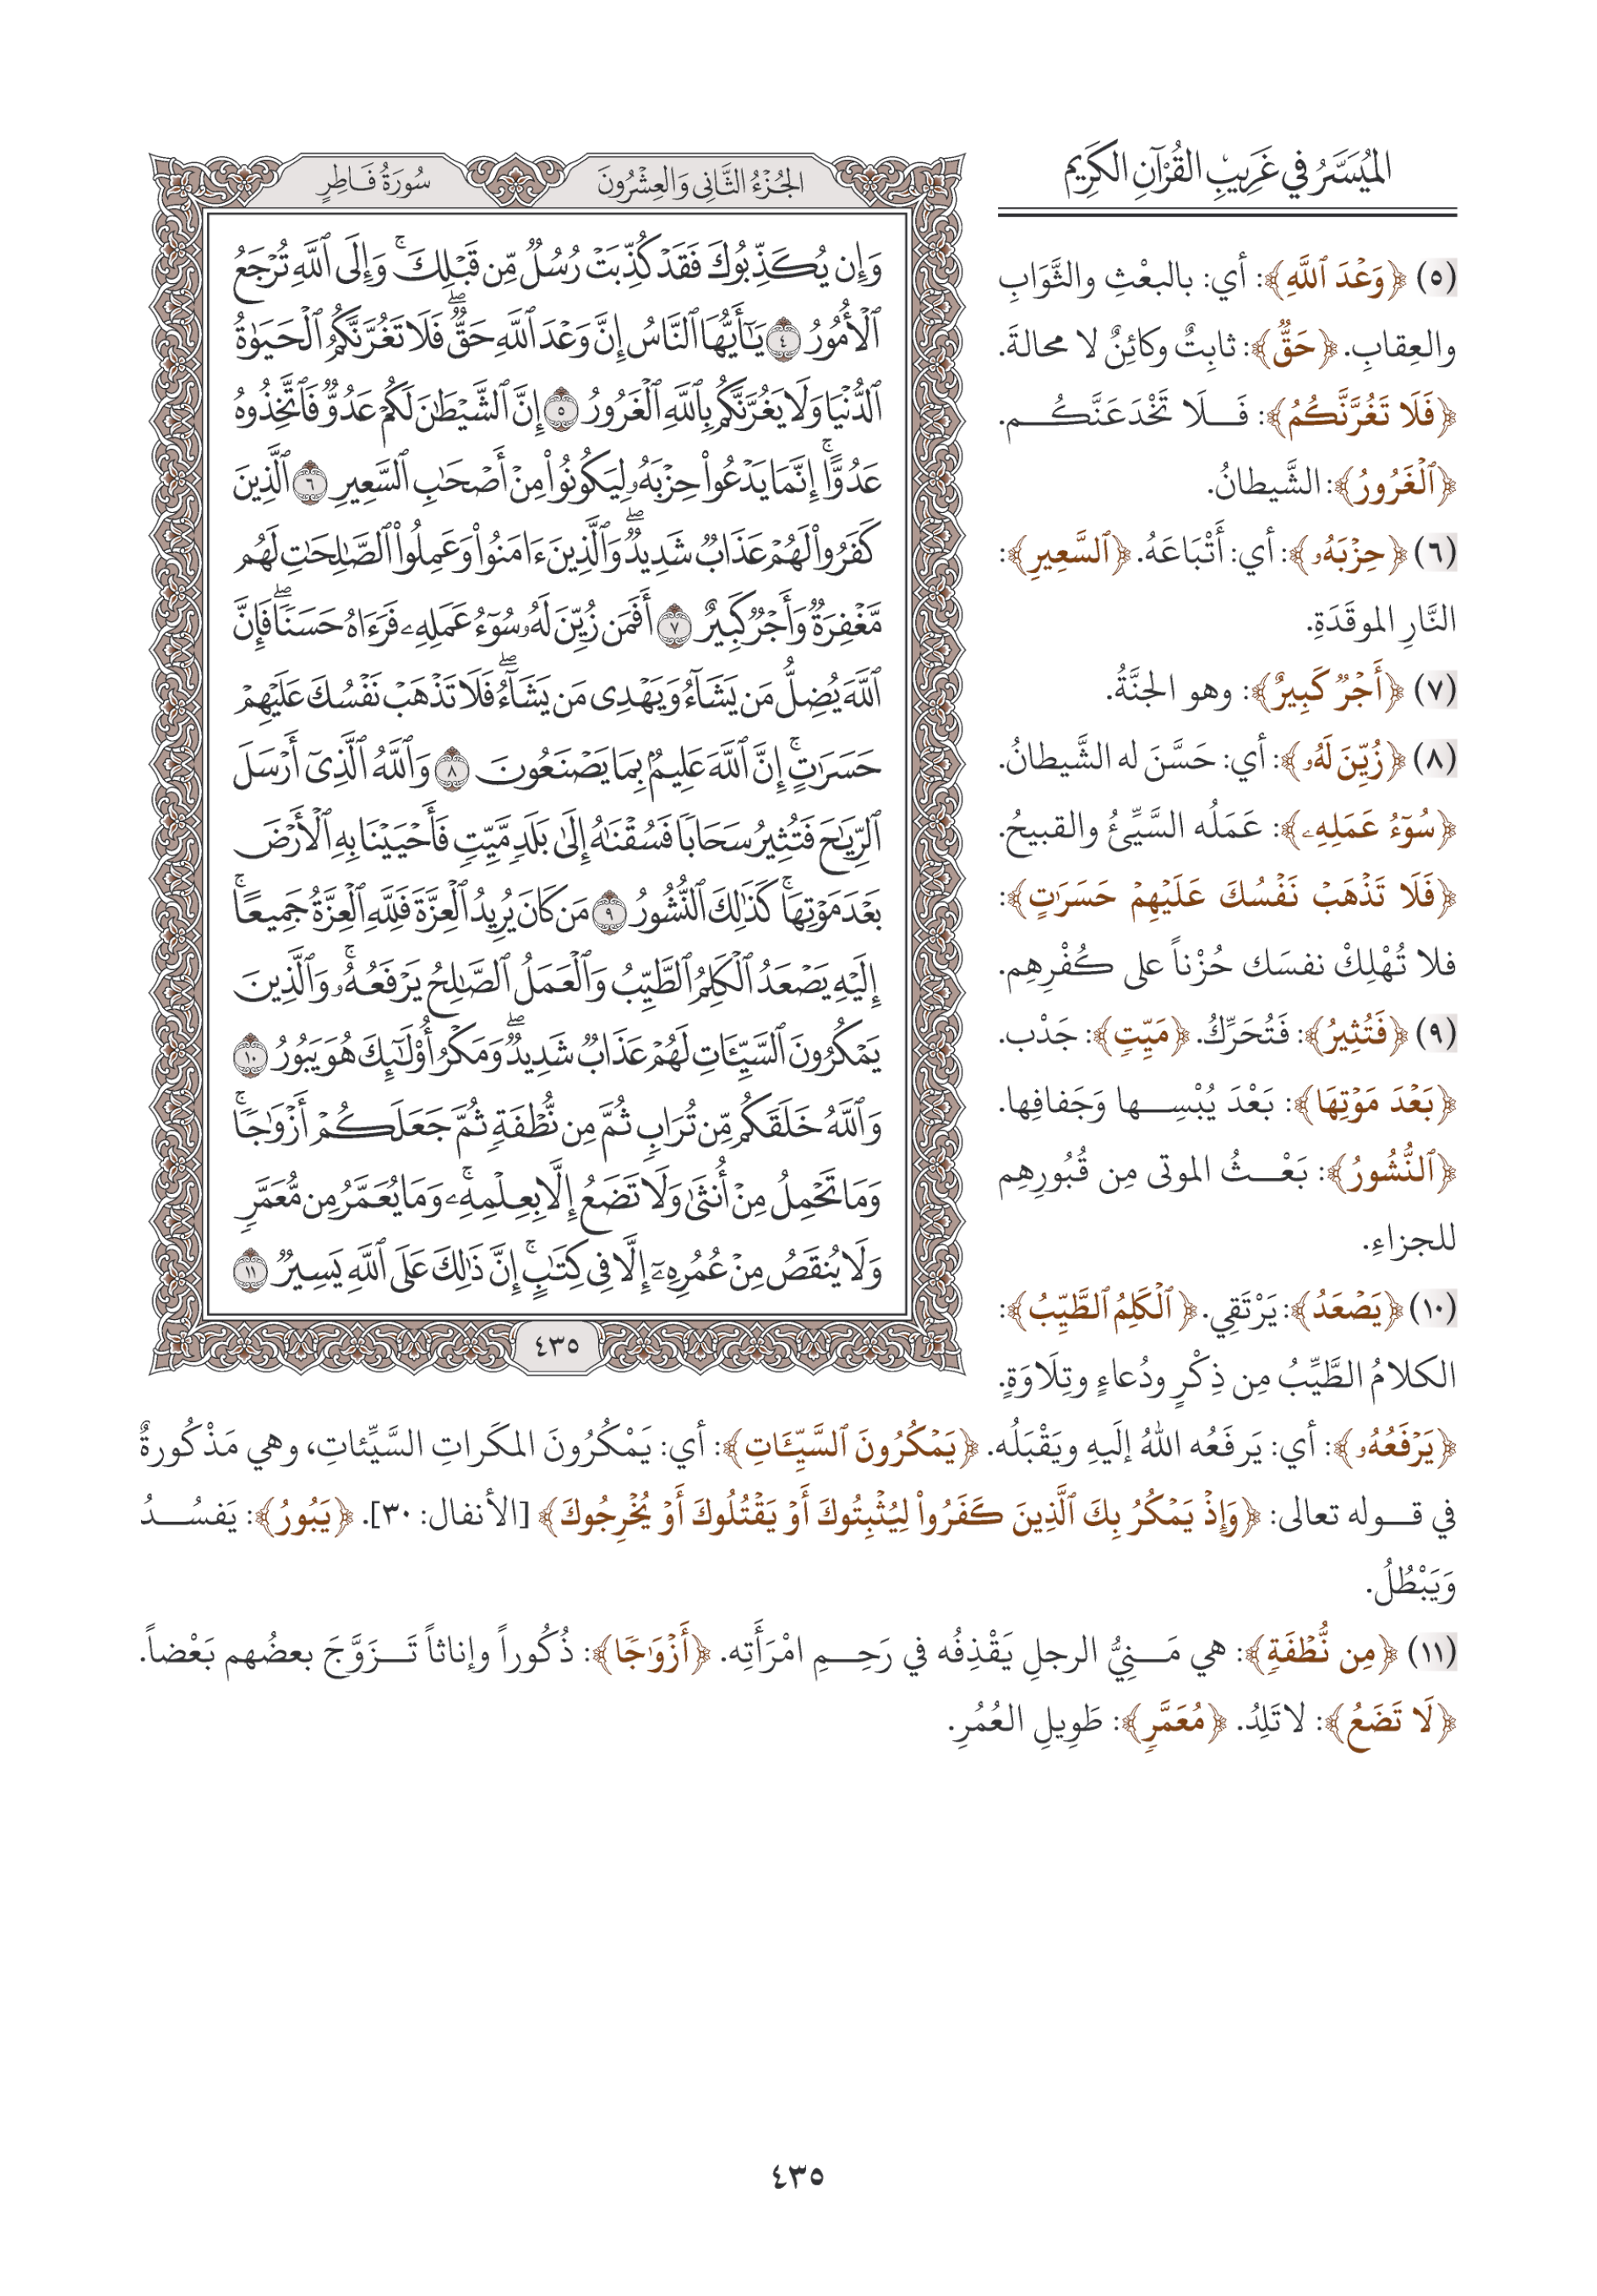 الميُسَّرُ في غَرِيبِ القُرْآنِ الكَرِيم
(٥) ﴿وَعْدَ ٱللَّهِ﴾: أي: بالبعْثِ والثَّوَابِ
والعِقابِ. ﴿حَقٌّ﴾: ثابِتٌ وكائِنٌ لا محالةَ.
﴿فَلَا تَغُرَّنَّكُمُ﴾: فَلَا تَخْدَعَنَّكُم.
﴿ٱلْغَرُورُ﴾: الشَّيطانُ.
(٦) ﴿حِزْبَهُۥ﴾: أي: أَتْبَاعَهُ. ﴿ٱلسَّعِيرِ﴾:
النَّارِ الموقَدَةِ.
(٧) ﴿أَجْرٌ كَبِيرٌ﴾: وهو الجنَّةُ.
(٨) ﴿زُيِّنَ لَهُۥ﴾: أي: حَسَّنَ له الشَّيطانُ.
﴿سُوٓءُ عَمَلِهِۦ﴾: عَمَلُه السَّيِّئُ والقبيحُ.
﴿فَلَا تَذْهَبْ نَفْسُكَ عَلَيْهِمْ حَسَرَٰتٍ﴾:
فلا تُهْلِكْ نفسَك حُزْناً على كُفْرِهِم.
(٩) ﴿فَتُثِيرُ﴾: فَتُحَرِّكُ. ﴿مَيِّتٍ﴾: جَدْب.
﴿بَعْدَ مَوْتِهَا﴾: بَعْدَ يُبْسِها وَجَفافِها.
﴿ٱلنُّشُورُ﴾: بَعْثُ الموتى مِن قُبُورِهِم
للجزاءِ.
(١٠) ﴿يَصْعَدُ﴾: يَرْتَقِي. ﴿ٱلْكَلِمُ ٱلطَّيِّبُ﴾:
الكلامُ الطَّيِّبُ مِن ذِكْرٍ ودُعاءٍ وتِلَاوَةٍ.
﴿يَرْفَعُهُۥ﴾: أي: يَرفَعُه اللهُ إلَيهِ ويَقْبَلُه. ﴿يَمْكُرُونَ ٱلسَّيِّـَٔاتِ﴾: أي: يَمْكُرُونَ المكَراتِ السَّيِّئاتِ، وهي مَذْكُورةٌ
في قوله تعالى: ﴿وَإِذْ يَمْكُرُ بِكَ ٱلَّذِينَ كَفَرُوا۟ لِيُثْبِتُوكَ أَوْ يَقْتُلُوكَ أَوْ يُخْرِجُوكَ﴾ [الأنفال: ٣٠]. ﴿يَبُورُ﴾: يَفسُدُ
وَيَبْطُلُ.
(١١) ﴿مِن نُّطْفَةٍ﴾: هي مَنِيُّ الرجلِ يَقْذِفُه في رَحِمِ امْرَأَتِه. ﴿أَزْوَٰجًا﴾: ذُكُوراً وإناثاً تَزَوَّجَ بعضُهم بَعْضاً.
﴿لَا تَضَعُ﴾: لا تَلِدُ. ﴿مُعَمَّرٍ﴾: طَوِيلِ العُمُرِ.
الجُزْءُ الثَّانِى وَالعِشْرُونَ
سُورَةُ فَاطِرٍ
وَإِن يُكَذِّبُوكَ فَقَدْ كُذِّبَتْ رُسُلٌ مِّن قَبْلِكَ ۚ وَإِلَى ٱللَّهِ تُرْجَعُ
ٱلْأُمُورُ ٤ يَـٰٓأَيُّهَا ٱلنَّاسُ إِنَّ وَعْدَ ٱللَّهِ حَقٌّ ۖ فَلَا تَغُرَّنَّكُمُ ٱلْحَيَوٰةُ
ٱلدُّنْيَا وَلَا يَغُرَّنَّكُم بِٱللَّهِ ٱلْغَرُورُ ٥ إِنَّ ٱلشَّيْطَـٰنَ لَكُمْ عَدُوٌّ فَٱتَّخِذُوهُ
عَدُوًّا ۚ إِنَّمَا يَدْعُوا۟ حِزْبَهُۥ لِيَكُونُوا۟ مِنْ أَصْحَـٰبِ ٱلسَّعِيرِ ٦ ٱلَّذِينَ
كَفَرُوا۟ لَهُمْ عَذَابٌ شَدِيدٌ ۖ وَٱلَّذِينَ ءَامَنُوا۟ وَعَمِلُوا۟ ٱلصَّـٰلِحَـٰتِ لَهُم
مَّغْفِرَةٌ وَأَجْرٌ كَبِيرٌ ٧ أَفَمَن زُيِّنَ لَهُۥ سُوٓءُ عَمَلِهِۦ فَرَءَاهُ حَسَنًا ۖ فَإِنَّ
ٱللَّهَ يُضِلُّ مَن يَشَآءُ وَيَهْدِى مَن يَشَآءُ ۖ فَلَا تَذْهَبْ نَفْسُكَ عَلَيْهِمْ
حَسَرَٰتٍ ۚ إِنَّ ٱللَّهَ عَلِيمٌۢ بِمَا يَصْنَعُونَ ٨ وَٱللَّهُ ٱلَّذِىٓ أَرْسَلَ
ٱلرِّيَـٰحَ فَتُثِيرُ سَحَابًا فَسُقْنَـٰهُ إِلَىٰ بَلَدٍ مَّيِّتٍ فَأَحْيَيْنَا بِهِ ٱلْأَرْضَ
بَعْدَ مَوْتِهَا ۚ كَذَٰلِكَ ٱلنُّشُورُ ٩ مَن كَانَ يُرِيدُ ٱلْعِزَّةَ فَلِلَّهِ ٱلْعِزَّةُ جَمِيعًا ۚ
إِلَيْهِ يَصْعَدُ ٱلْكَلِمُ ٱلطَّيِّبُ وَٱلْعَمَلُ ٱلصَّـٰلِحُ يَرْفَعُهُۥ ۚ وَٱلَّذِينَ
يَمْكُرُونَ ٱلسَّيِّـَٔاتِ لَهُمْ عَذَابٌ شَدِيدٌ ۖ وَمَكْرُ أُو۟لَـٰٓئِكَ هُوَ يَبُورُ ١٠
وَٱللَّهُ خَلَقَكُم مِّن تُرَابٍ ثُمَّ مِن نُّطْفَةٍ ثُمَّ جَعَلَكُمْ أَزْوَٰجًا ۚ
وَمَا تَحْمِلُ مِنْ أُنثَىٰ وَلَا تَضَعُ إِلَّا بِعِلْمِهِۦ ۚ وَمَا يُعَمَّرُ مِن مُّعَمَّرٍ
وَلَا يُنقَصُ مِنْ عُمُرِهِۦٓ إِلَّا فِى كِتَـٰبٍ ۚ إِنَّ ذَٰلِكَ عَلَى ٱللَّهِ يَسِيرٌ ١١
٤٣٥
٤٣٥